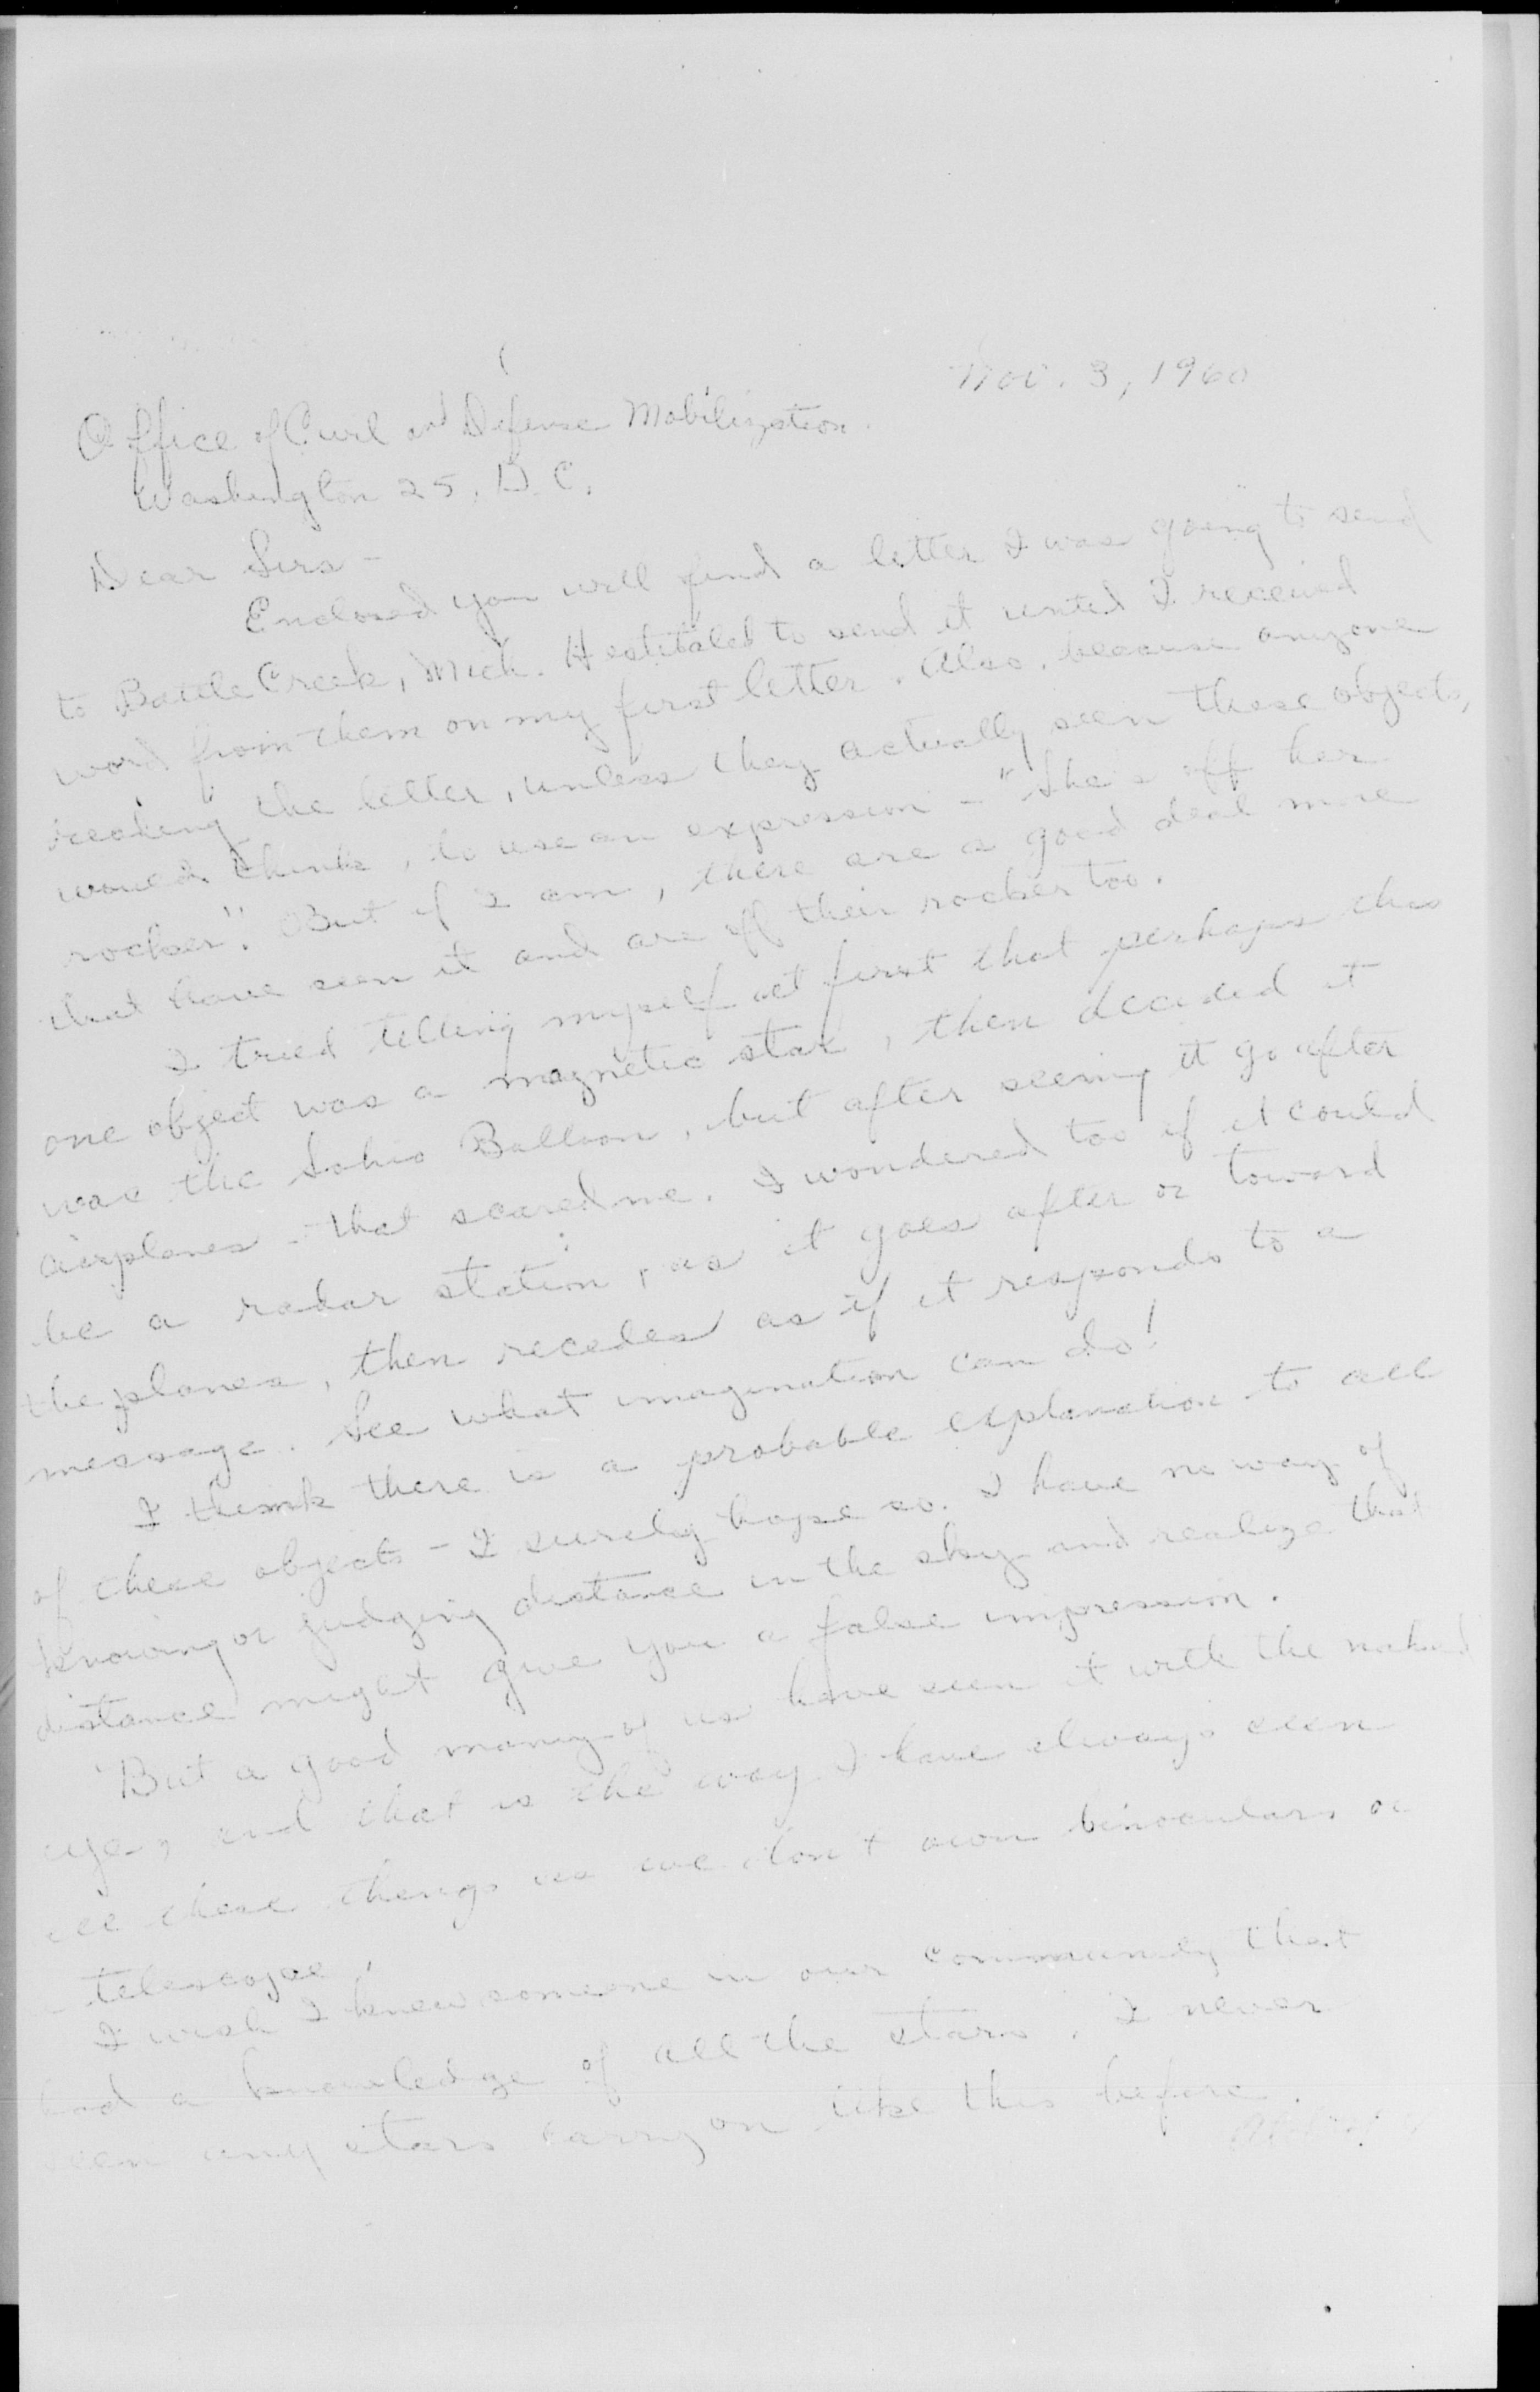 Nov. 3, 1960
Office of Civil and Defense Mobilization.
Washington 25, D.C.
Dear Sirs -
Enclosed you will find a letter I was going to send
to Battle Creek, Mich. Hestitated to send it until I received
word from them on my first letter. Also, because anyone
reading the letter, unless they actually seen these objects,
would think, to use an expression - "she's off her
rocker". But if I am, there are a good deal more
that have seen it and are off their rocker too.
I tried telling myself at first that perhaps this
one object was a magnetic star, then decided it
was the Sohio Balloon, but after seeing it go after
airplanes - that scared me. I wondered too if it could
be a radar station, as it goes after or toward
the planes, then recedes as if it responds to a
message. See what imagination can do!
I think there is a probable explanation to all
of these objects - I surely hope so. I have no way of
knowing or judging distance in the sky and realize that
distance might give you a false impression.
But a good many of us have seen it with the naked
eye, and that is the way I have always seen
all these things as we don't own binoculars or
telescope.
I wish I knew someone in our community that
had a knowledge of all the stars. I never
seen any stars carry on like this before.